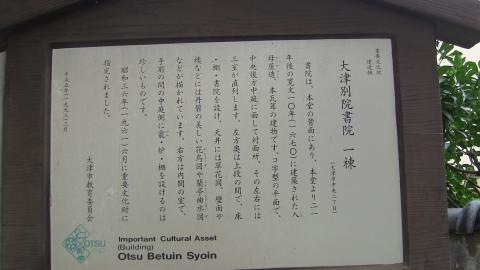 重要文化財
建造物
大津別院書院 一棟
(大津市中央二丁目)
書院は、本堂の背面にあり、本堂より二一
年後の寛文一〇年(一六七〇)に建築された入
母屋造、本瓦葺の建物です。コ字型の平面で、
中央後方中庭に面して対面所、その左右には
三室が直列します。左方奥は上段の間で、床
・棚・書院を設け、天井には草花図、壁面や
襖などには丹碧の美しい花鳥図や蘭亭曲水図
などが描かれています。右方は内間の室で、
手前の間の中庭側に竈・炉・棚を設けるのは
珍しいものです。
昭和三六年(一九六一)六月に重要文化財に
指定されました。
大津市教育委員会
平成五年(一九九三)三月
OTSU
Important Cultural Asset
(Building)
Otsu Betuin Syoin